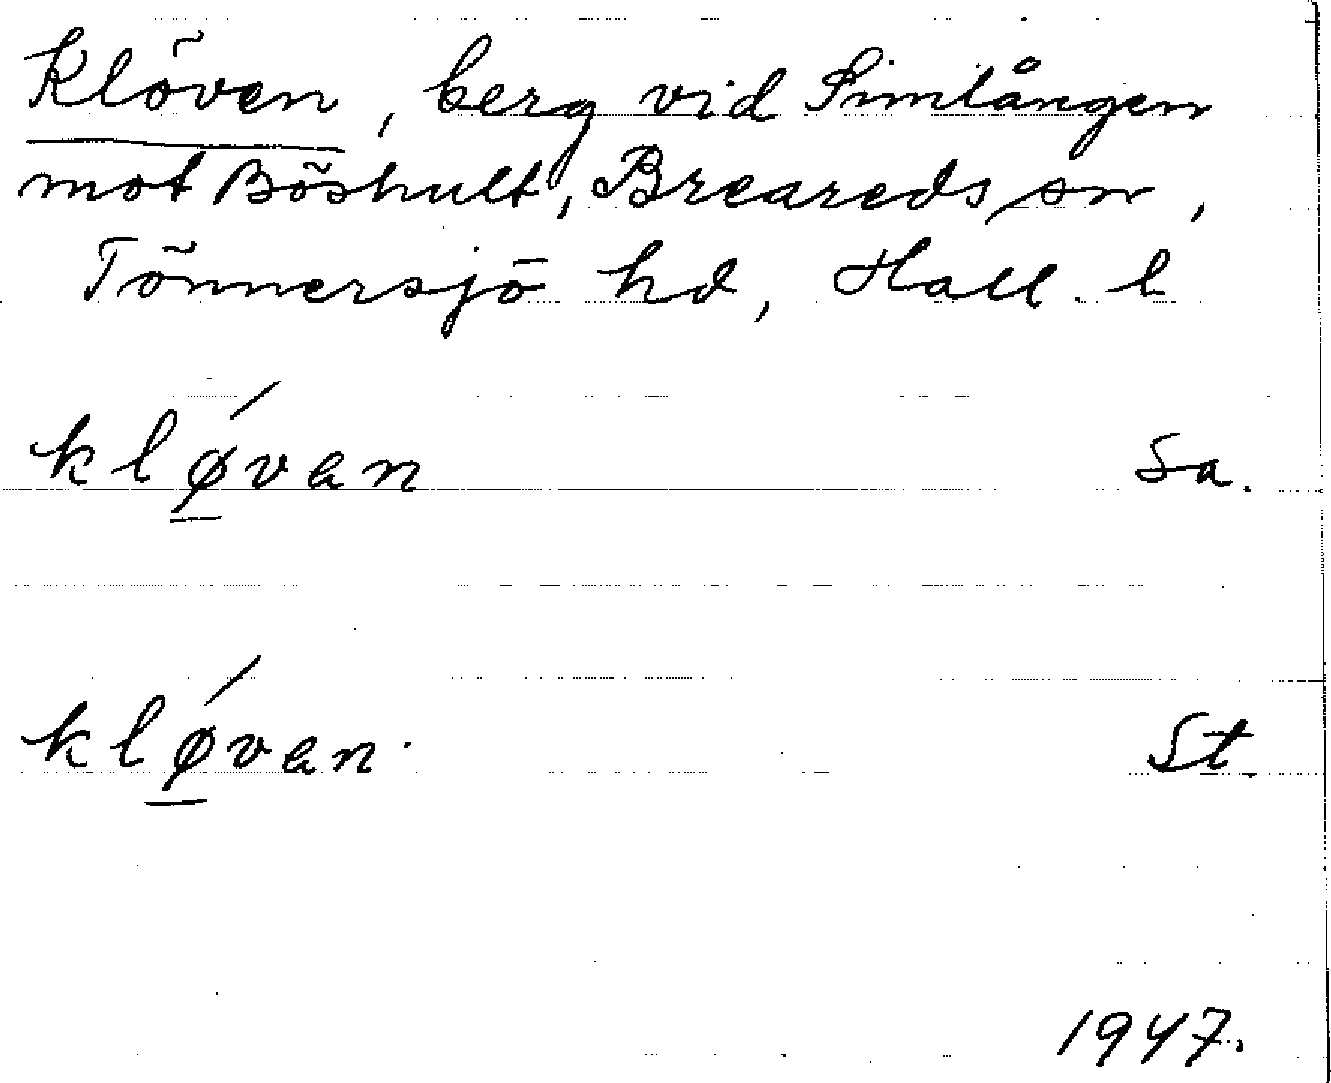 Klöven, berg vid Simlången
mot Böshult, Breareds sn,
Tönnersjö hd, Hall. l
klǿvan Sa.
klǿvan. St.
1947.